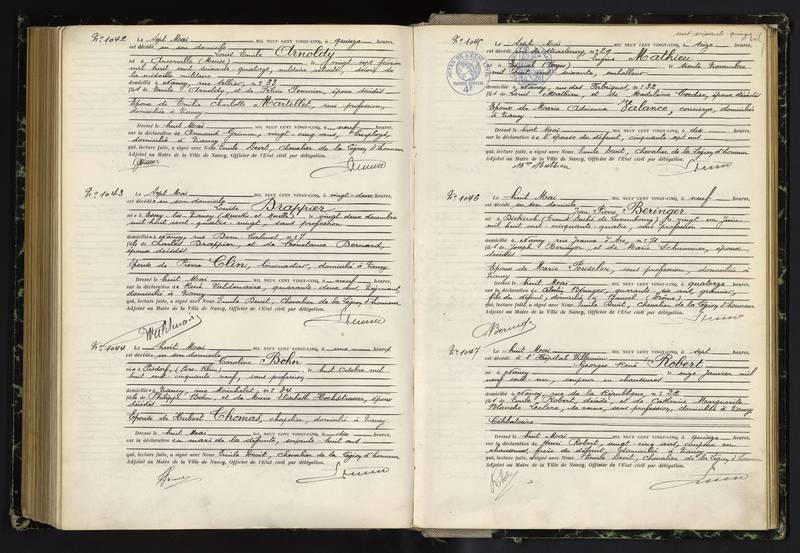 N° 1042 Le Sept Mai MIL NEUF CENT VINGT-CINQ, à quinze heures,
est décédé en son domicile
Louis Emile Arnoldy
né à (Meuse) le vingt sept février
mil huit cent soixante quatorze, militaire retraité, décoré de
la médaille militaire
domicilié à Nancy, rue n° 33
fils de Emile Arnoldy, et de époux décédés
Epoux de Emilie Charlotte Martellet, sans profession,
domiciliée à Nancy
Dressé le huit Mai MIL NEUF CENT VINGT-CINQ, à neuf heures,
sur la déclaration de Armand vingt-cinq ans, employé,
domicilié à Nancy
qui, lecture faite, a signé avec Nous Emile Chevalier de la Légion d'honneur
Adjoint au Maire de la Ville de Nancy, Officier de l'Etat civil par délégation.
N° 1043 Le Sept Mai MIL NEUF CENT VINGT-CINQ, à vingt-deux heures,
est décédée en son domicile
Brappier
née à Essey-lès-Nancy (Meurthe et Moselle) le vingt deux décembre
mil huit cent quatre-vingt, sans profession
domiciliée à Nancy, rue Dom Calmet n° 7
fille de Brappier, et de Constance Bernard,
époux décédés
Epouse de Pierre Clin, limonadier, domicilié à Nancy
Dressé le huit Mai MIL NEUF CENT VINGT-CINQ, à neuf heures,
sur la déclaration de René Valdenaire, quarante-deux ans,
domicilié à Nancy
qui, lecture faite, a signé avec Nous Emile Chevalier de la Légion d'honneur
Adjoint au Maire de la Ville de Nancy, Officier de l'Etat civil par délégation.
N° 1044 Le huit Mai MIL NEUF CENT VINGT-CINQ, à une heure,
est décédée en son domicile
Caroline Bohn
née à Pisdorf, (Bas-Rhin) le huit Octobre mil
huit cent cinquante neuf, sans profession
domiciliée à Nancy, rue Michelet, n° 34
fille de Philippe Bohn, et de Marie Elisabeth époux
décédés
Epouse de Hubert Thomas, chapelier, domicilié à Nancy
Dressé le huit Mai MIL NEUF CENT VINGT-CINQ, à dix heures,
sur la déclaration du mari de la défunte, soixante huit ans
qui, lecture faite, a signé avec Nous Emile Chevalier de la Légion d'honneur
Adjoint au Maire de la Ville de Nancy, Officier de l'Etat civil par délégation.
N° 1045 Le Sept Mai MIL NEUF CENT VINGT-CINQ, à seize heures,
est décédé rue de Strasbourg n° 29
Eugène Mathieu
né à Epinal (Vosges) le trente Novembre
mil huit cent soixante, emballeur
domicilié à Nancy, rue des Fabriques, n° 32
fils de Louis Mathieu, et de Madeleine Cordier, époux décédés
Epoux de Marie Adrienne Valance, concierge, domiciliée
à Nancy
Dressé le huit Mai MIL NEUF CENT VINGT-CINQ, à dix heures,
sur la déclaration de l'épouse du défunt, cinquante sept ans
qui, lecture faite, a signé avec Nous Emile Chevalier de la Légion d'honneur
Adjoint au Maire de la Ville de Nancy, Officier de l'Etat civil par délégation.
Mathieu
N° 1046 Le huit Mai MIL NEUF CENT VINGT-CINQ, à neuf heures,
est décédé en son domicile
Jean Pierre Beringer
né à (Grand Duché de Luxembourg) le vingt un Juin
mil huit cent cinquante quatre, sans profession
domicilié à Nancy rue Jeanne d'Arc, n° 71
fils de Joseph Beringer, et de Marie époux
décédés
Epoux de Marie sans profession, domiciliée à
Nancy
Dressé le huit Mai MIL NEUF CENT VINGT-CINQ, à quatorze heures,
sur la déclaration de Beringer, quarante six ans,
fils du défunt, domicilié à (Drôme)
qui, lecture faite, a signé avec Nous Emile Chevalier de la Légion d'honneur
Adjoint au Maire de la Ville de Nancy, Officier de l'Etat civil par délégation.
N° 1047 Le huit Mai MIL NEUF CENT VINGT-CINQ, à sept heures,
est décédé à l'Hôpital Villemin
Georges René Robert
né à Nancy le onze Janvier mil
neuf cent un, coupeur en chaussures
domicilié à Nancy, rue de la République, n° 22
fils de Emile Robert, décédé et de Catherine Marguerite
Blanche Leclerc, sa veuve, sans profession, domiciliée à Nancy
Célibataire
Dressé le huit Mai MIL NEUF CENT VINGT-CINQ, à quinze heures,
sur la déclaration de Henri Robert, vingt cinq ans, coupeur en
chaussures, frère du défunt, domicilié à Nancy
qui, lecture faite, a signé avec Nous Emile Chevalier de la Légion d'honneur
Adjoint au Maire de la Ville de Nancy, Officier de l'Etat civil par délégation.